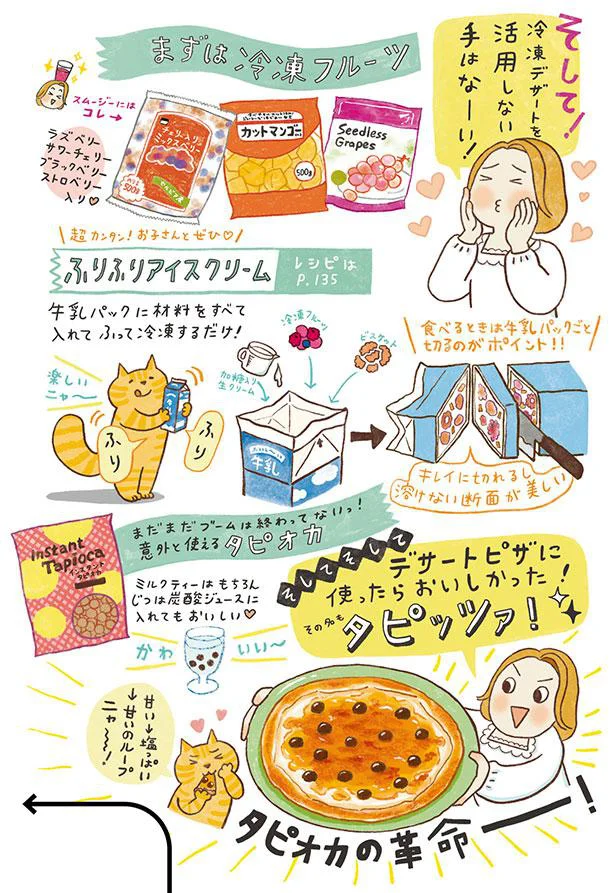 そして!
冷凍デザートを
活用しない
手はなーい!
まずは冷凍フルーツ
スムージーには
コレ→
ラズベリー
サワーチェリー
ブラックベリー
ストロベリー
入り♡
チェリー入り
ミックスベリー
500g
カットマンゴー
500g
Seedless
Grapes
超カンタン!お子さんとぜひ♡
ふりふりアイスクリーム
レシピは
P.135
牛乳パックに材料をすべて
入れてふって冷凍するだけ!
楽しい
ニャ〜
ふり
ふり
加糖入り
生クリーム
冷凍フルーツ
ビスケット
牛乳
食べるときは牛乳パックごと
切るのがポイント!!
キレイに切れるし
溶けない断面が美しい
まだまだブームは終わってないっ!
意外と使えるタピオカ
instant
Tapioca
インスタント
タピオカ
ミルクティーはもちろん
じつは炭酸ジュースに
入れてもおいしい♡
かわいい〜
そしてそして
デザートピザに
使ったらおいしかった!
その名も
タピッツァ!
甘い→塩っぱい
→甘いのループ
ニャ〜〜!
タピオカの革命ーー!